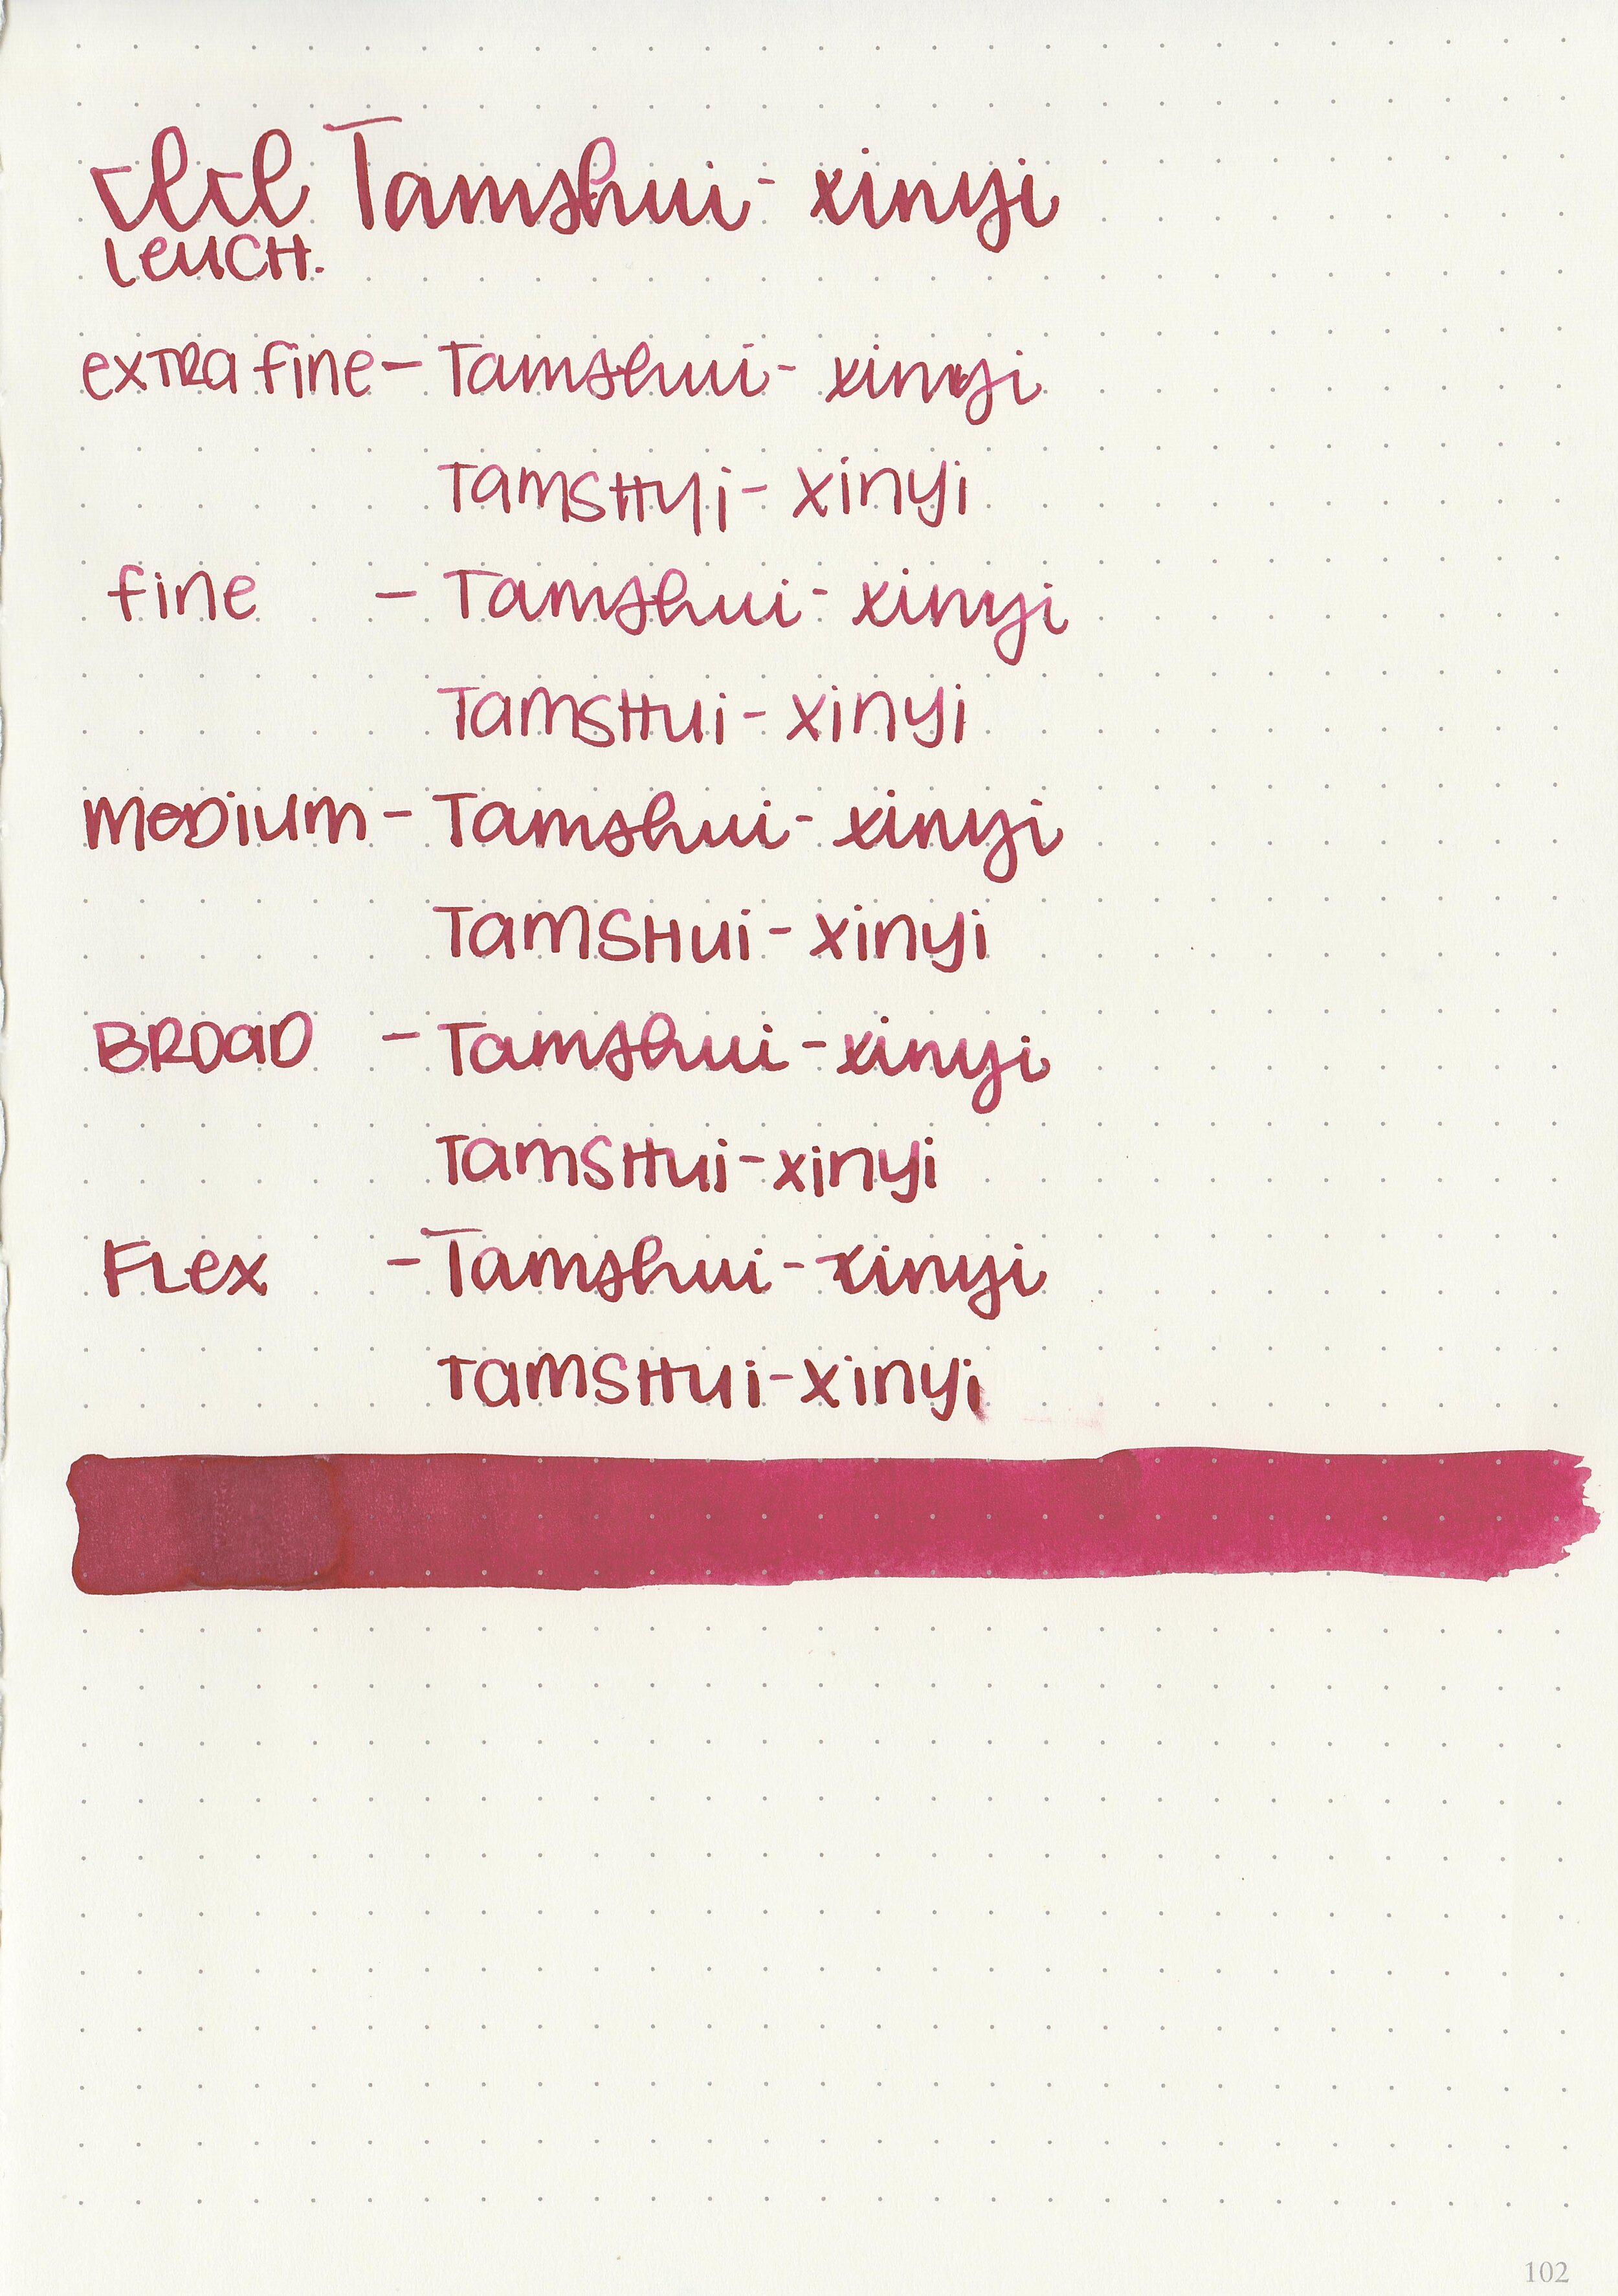 Tamshui- xinyi
LeucH.
exTRa fine - Tamshui- xinyi
TamSHui- xinyi
fine - Tamshui- xinyi
TamSHui- xinyi
meDium - Tamshui- xinyi
TamSHui- xinyi
BROaD - Tamshui - xinyi
TamSHui-xinyi
FLex - Tamshui - xinyi
TamSHui-xinyi
102